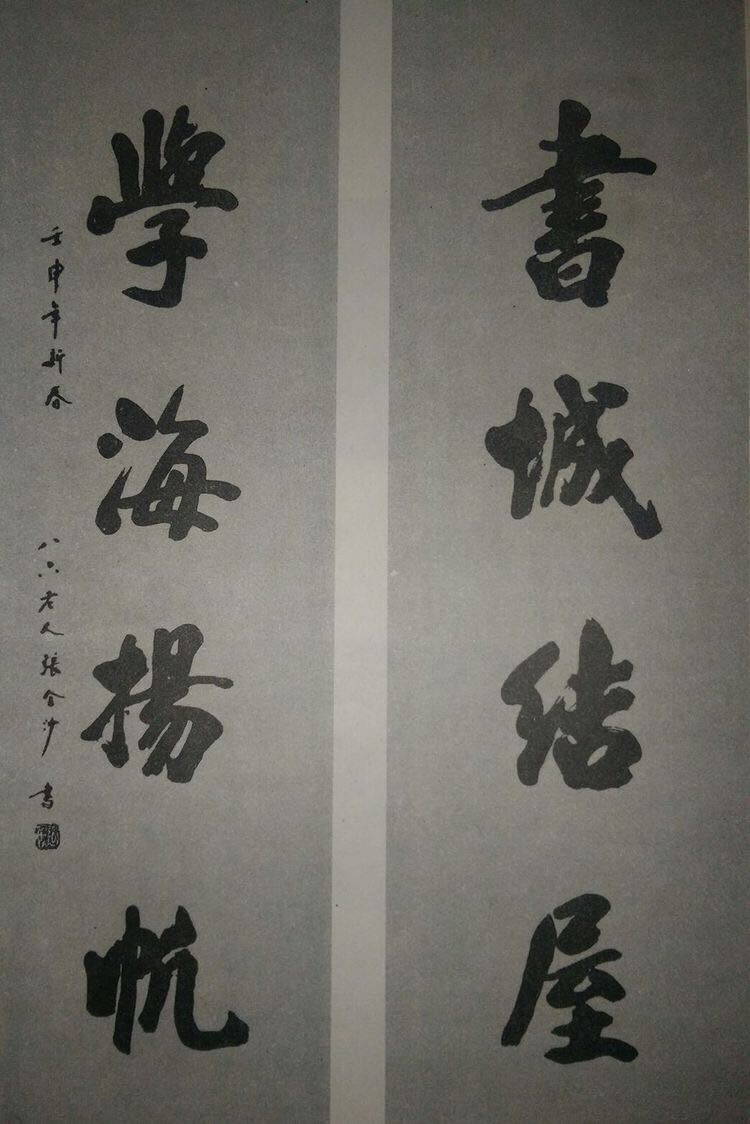 書城結屋
學海揚帆
壬申年新春
八六老人張
書